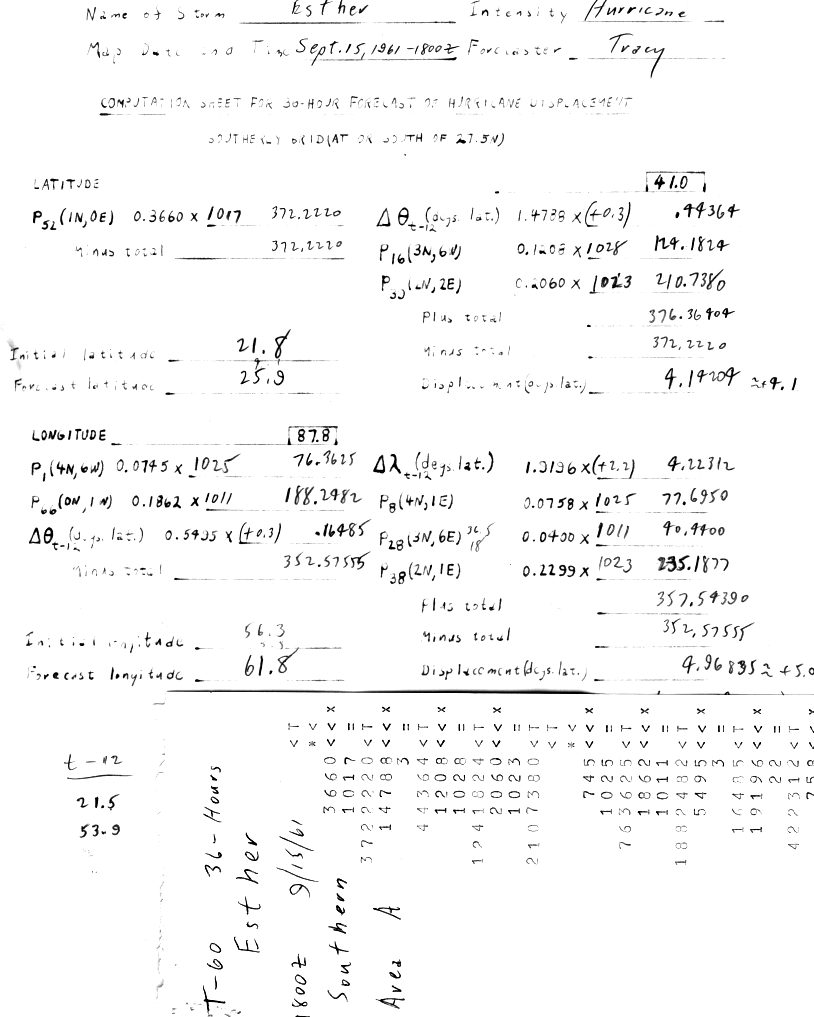 Name of Storm Esther Intensity Hurricane
Map Date and Time Sept. 15, 1961 - 1800Z Forecaster Tracy
COMPUTATION SHEET FOR 30-HOUR FORECAST OF HURRICANE DISPLACEMENT
SOUTHERLY GRID (AT OR SOUTH OF 27.5N)
LATITUDE 41.0
P52 (1N, 0E) 0.3660 x 1017 372.2220 Δθt-12 (degs. lat.) 1.4788 x (+0.3) .44364
Minus total 372.2220 P16 (3N, 6W) 0.1208 x 1028 124.1824
(2N, 2E) 0.2060 x 1023 210.7380
Plus total 376.36404
Initial latitude 21.8 Minus total 372.2220
Forecast latitude 25.9 Displacement (degs. lat.) 4.14204 ≈ +4.1
LONGITUDE 87.8
P1 (4N, 6W) 0.0745 x 1025 76.3625 Δλt-12 (degs. lat.) 1.9196 x (+2.2) 4.22312
P66 (0N, 1W) 0.1862 x 1011 188.2482 P8 (4N, 1E) 0.0758 x 1025 77.6950
Δθt-12 (degs. lat.) 0.5495 x (+0.3) .16485 P28 (3N, 6E) 0.0400 x 1011 40.4400
Minus total 352.57555 P38 (2N, 1E) 0.2299 x 1023 235.1877
Plus total 357.54390
Initial longitude 56.3 Minus total 352.57555
Forecast longitude 61.8 Displacement (degs. lat.) 4.96835 ≈ +5.0
t-12
21.5
53.9
T-60 36-Hours
Esther
1800Z 9/15/61
Southern
Area A
< T
* <
3660 < x
1017 =
3722220 < T
14788 < x
3 =
44364 < T
1208 < x
1028 =
1241824 < T
2060 < x
1023 =
2107380 < T
< T
* <
745 < x
1025 =
763625 < T
1862 < x
1011 =
1882482 < T
5495 < x
3 =
16485 < T
19196 < x
22 =
422312 < T
758 < x